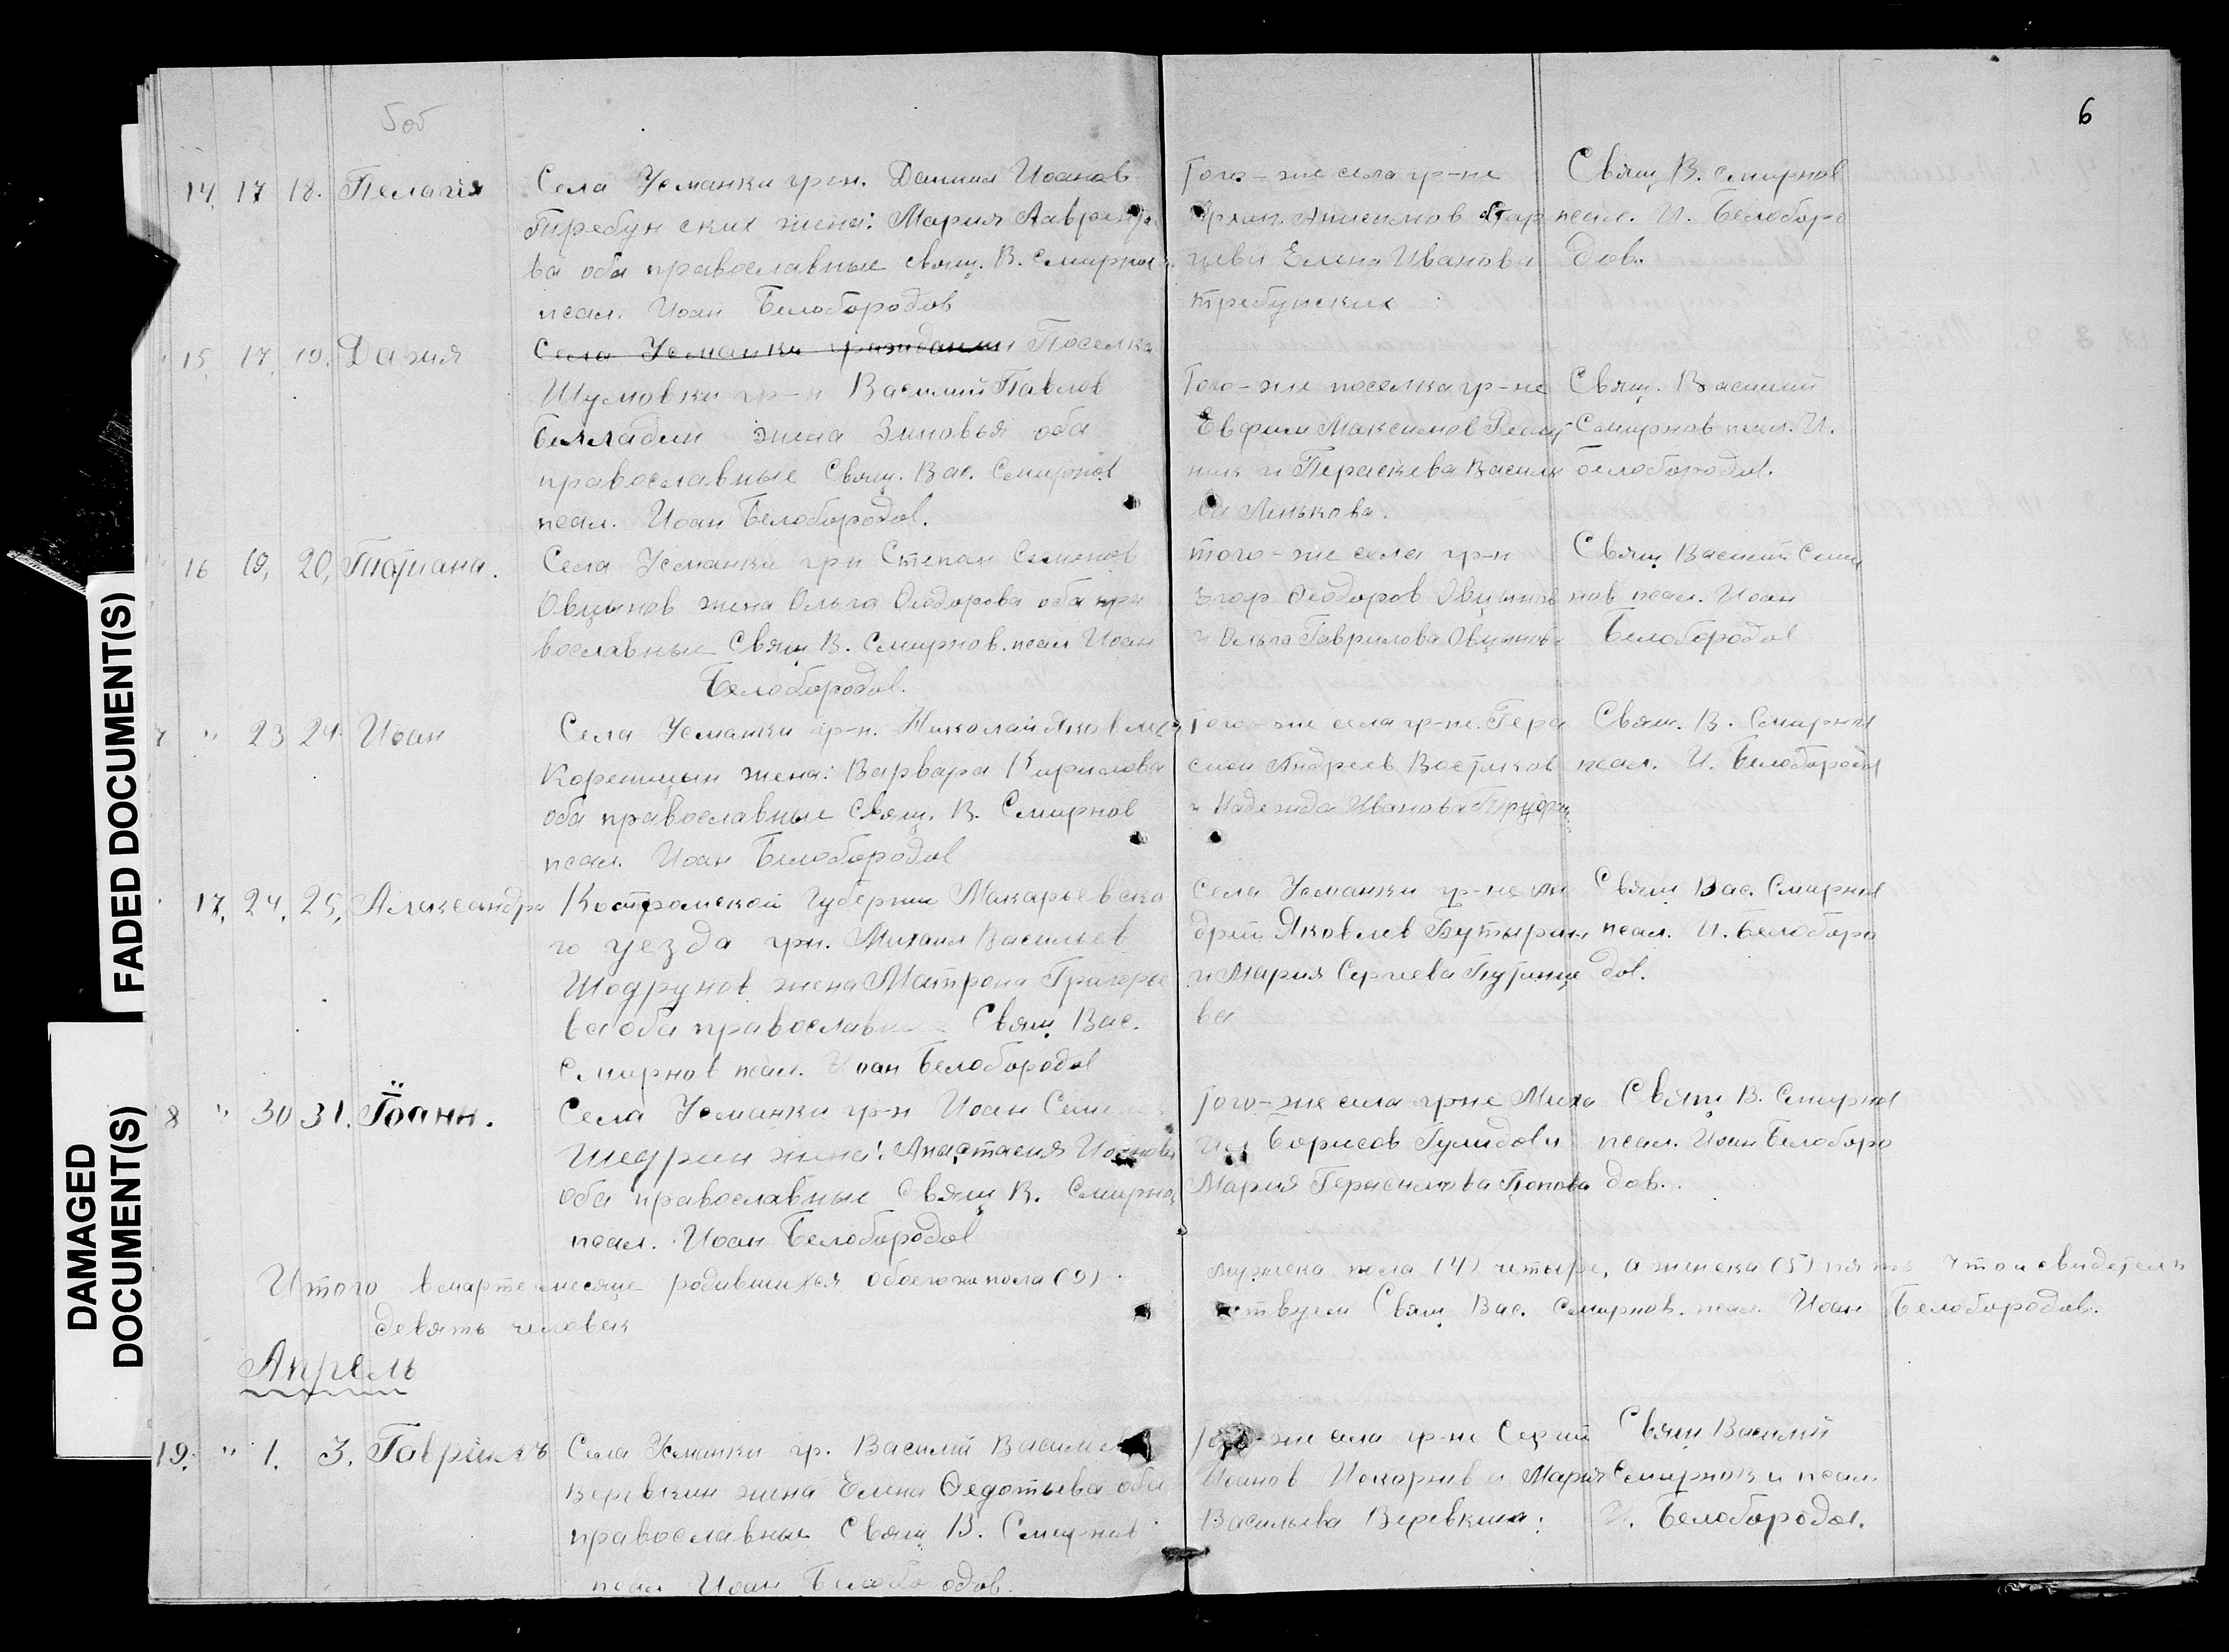 5об
6
14. 17 18. Пелагия
Села Усманки грн. Даниил Иоанов
Требунских жена: Мария Лаврентье
ва оба православные свящ. В. Смирнов
псал. Иоан Белобородов
Того-же села гр-не
Архип. Анисимов Стар
цеви Елена Иванова
требунских
Свящ В. Смирнов
псал. И. Белоборо
дов.
15. 17. 19. Дария
Села Усманки гражданин Поселка
Шумовки гр-н Василий Павлов
жена Зиновья оба
православные Свящ. Вас. Смирнов
псал. Иоан Белобородов.
Того-же поселка гр-не
Евфим Максимов
ник и Параскева Василь
ва Ленькова.
Свящ. Василий
Смирнов псал. И.
Белобородов.
16 19, 20, Татиана.
Села Усманки грн Степан Семенов
Овцынов жена Ольга Феодорова оба пра
вославные Свящ В. Смирнов. псал Иоан
Белобородов.
того-же села гр-н
Егор Феодоров Овцынов
и Ольга Гаврилова Овцынова
Свящ Василий Смир
нов псал. Иоан
Белобородов
7 " 23 24. Иоан
Села Усманки гр-н. Николай Яковлев
Корепицын жена: Варвара Кирилова
оба православные Свящ. В. Смирнов
псал. Иоан Белобородов
Того-же села гр-не. Гера
сим Андреев Востриков
и Надежда Иванова
Свящ. В. Смирнов
псал. И. Белобородов
17, 24, 25, Александра
Костромской Губернии Макарьевско
го уезда грн. Михаил Васильев
Шодрунов жена Матрона Григорье
ва оба православные Свящ Вас.
Смирнов псал. Иоан Белобородов
Села Усманки гр-не Ан
дрей Яковлев Бутырин
и Мария Сергиева Путинце
ва
Свящ Вас. Смирнов
псал. И. Белоборо
дов.
8 " 30 31. Іоанн.
Села Усманки гр-н Иоан Семенов
Шедрин жена: Анастасия Иоанова
оба православные Свящ В. Смирнов
псал. Иоан Белобородов
Того-же села грне Миха
ил Борисов Гулидов и
Мария Герасимова Попова
Свящ В. Смирнов
псал. Иоан Белоборо
дов.
Итого в марте месяце родившихся обоего пола (9)
девять человек
мужска пола (4) четыре, а женска (5) пять что и свидетель
ствуем Свящ Вас. Смирнов. псал. Иоан Белобородов.
Апрель
19. " 1. 3. Гавриилъ
Села Усманки гр. Василий Васильев
Веревкин жена Елена Федотьева оба
православные Свящ В. Смирнов
псал Иоан Белобородов.
Того-же села гр-не Сергий
Иоанов и Мария
Васильева Веревкина:
Свящ Василий
Смирнов и псал.
И. Белобородов.
DAMAGED
DOCUMENT(S)
FADED DOCUMENT(S)